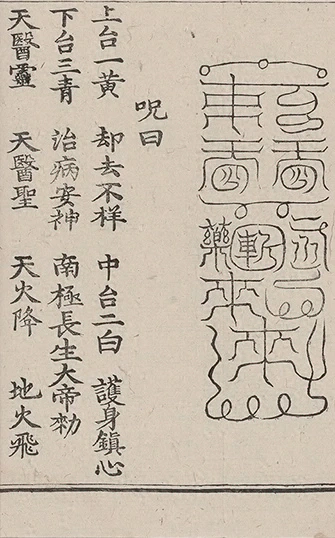 呪曰
上台一黄 却去不样 中台二白 護身鎮心
下台三青 治病安神 南極長生大帝勑
天醫靈 天醫聖 天火降 地火飛